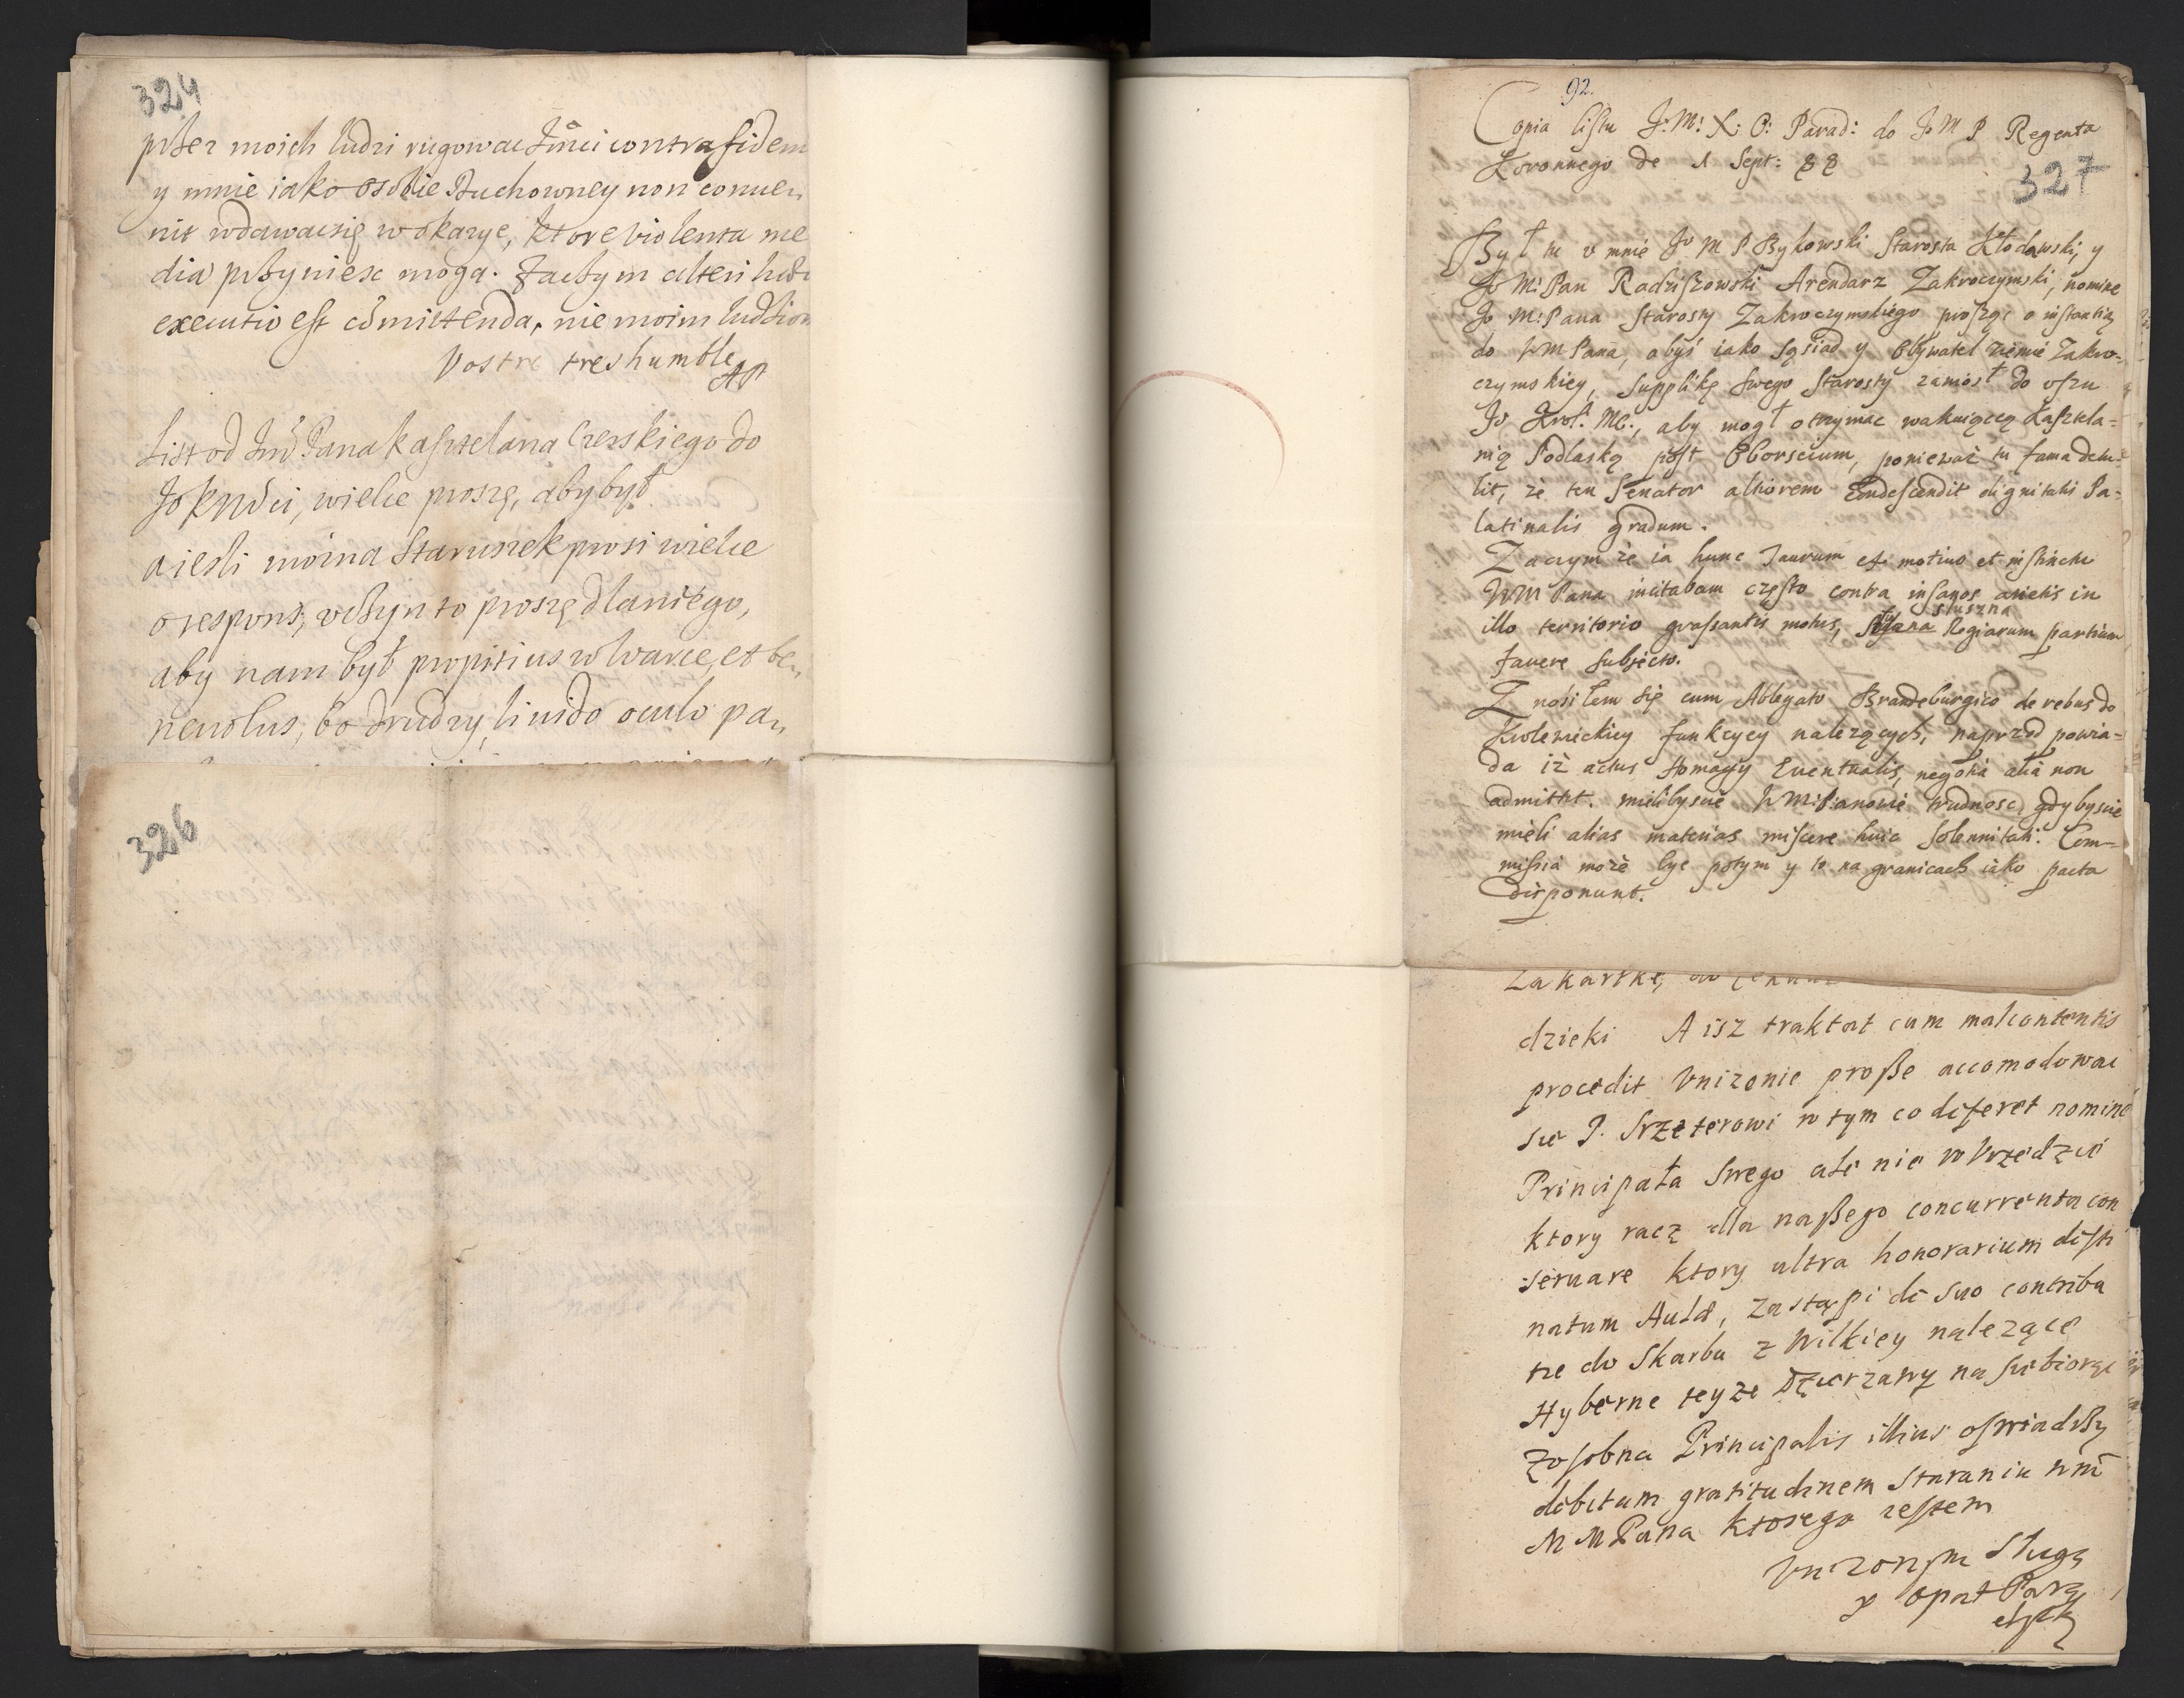 324
przez moich ludzi rugować Jmci contra fidem
y mnie iako osobie Duchowney non conue-
nit wdawać się w okazye, ktore violenta me
dia przyniesc mogą. Zaczym alteri
executio est comittenda, nie moim
Vostre treshumble
AP
List od Jm Pana kasztelana Czerskiego do
Jo , wielce proszę, aby był
a iesli moina Staruszek prosi wielce
o respons, vczyn to proszę dla niego,
aby nam był propitius w Warce, et be-
neuolus, bo drudzy liuido oculo pa-
326
92.
Copia listu J: M: X: O: Parad: do Jo M P Regenta
Koronnego de 1 Sept: 88
327
Był tu v mnie Jo M P Bykowski Starosta Kłodawski, y
Jo M: Pan Radziszowski Arendarz Zakroczymski, nomine
Jo M: Pana Starosty Zakroczymskiego prosząc o instantią
do WM Pana, abyś iako Sąsiad y Obywatel ziemie Zakro-
czymskiey, Supplikę swego Starosty zaniosł do vszu
Jo Krol: Mci., aby mogł otrzymac wakuiącą Kasztela-
nią Podlaską post Oborscium, poniewaz tu fama detu-
lit, że ten Senator altiorem Condescendit dignitatis Pa-
latinalis gradum.
Zaczym że ia hunc Taurum ex motiuo et instinctu
WM Pana incitabam często contra insanos arietis in
illo territorio grassantis motus, słuszna Regiarum partium
fauere subiecto.
Znosiłem się cum Ablegato Brandeburgico de rebus do
Krolewickiey funkcyey należących, naprzod powia-
da iż actus Homagy Euentualis, negotia alia non
admittit. mielibyscie WM: Panowie trudnosc, gdybyscie
mieli alias materias miscere huic solennitati. Com-
missia może byc potym y to na granicach iako pacta
disponunt.
Za kartkę,
dzieki A isz traktat cum malcontentis
procedit Vnizonie prosze accomodowac
sie P. Srzeterowi w tym co deferet nomine
Principała Swego ale nie w Vrzedzie
ktory racz dla naszego concurrenta con
seruare ktory ultra honorarium desti
natum Aulae, zastąpi de suo contribu
tie do Skarbu z Wilkiey nalezące
Hyberne teyze Dzierzawy na sie biorąc
Zosobna Principalis illius oswiadczy
debitam gratitudinem Staraniu Wm
M M Pana ktorego iestem
Vnizonym Sługą
y Opat Parad